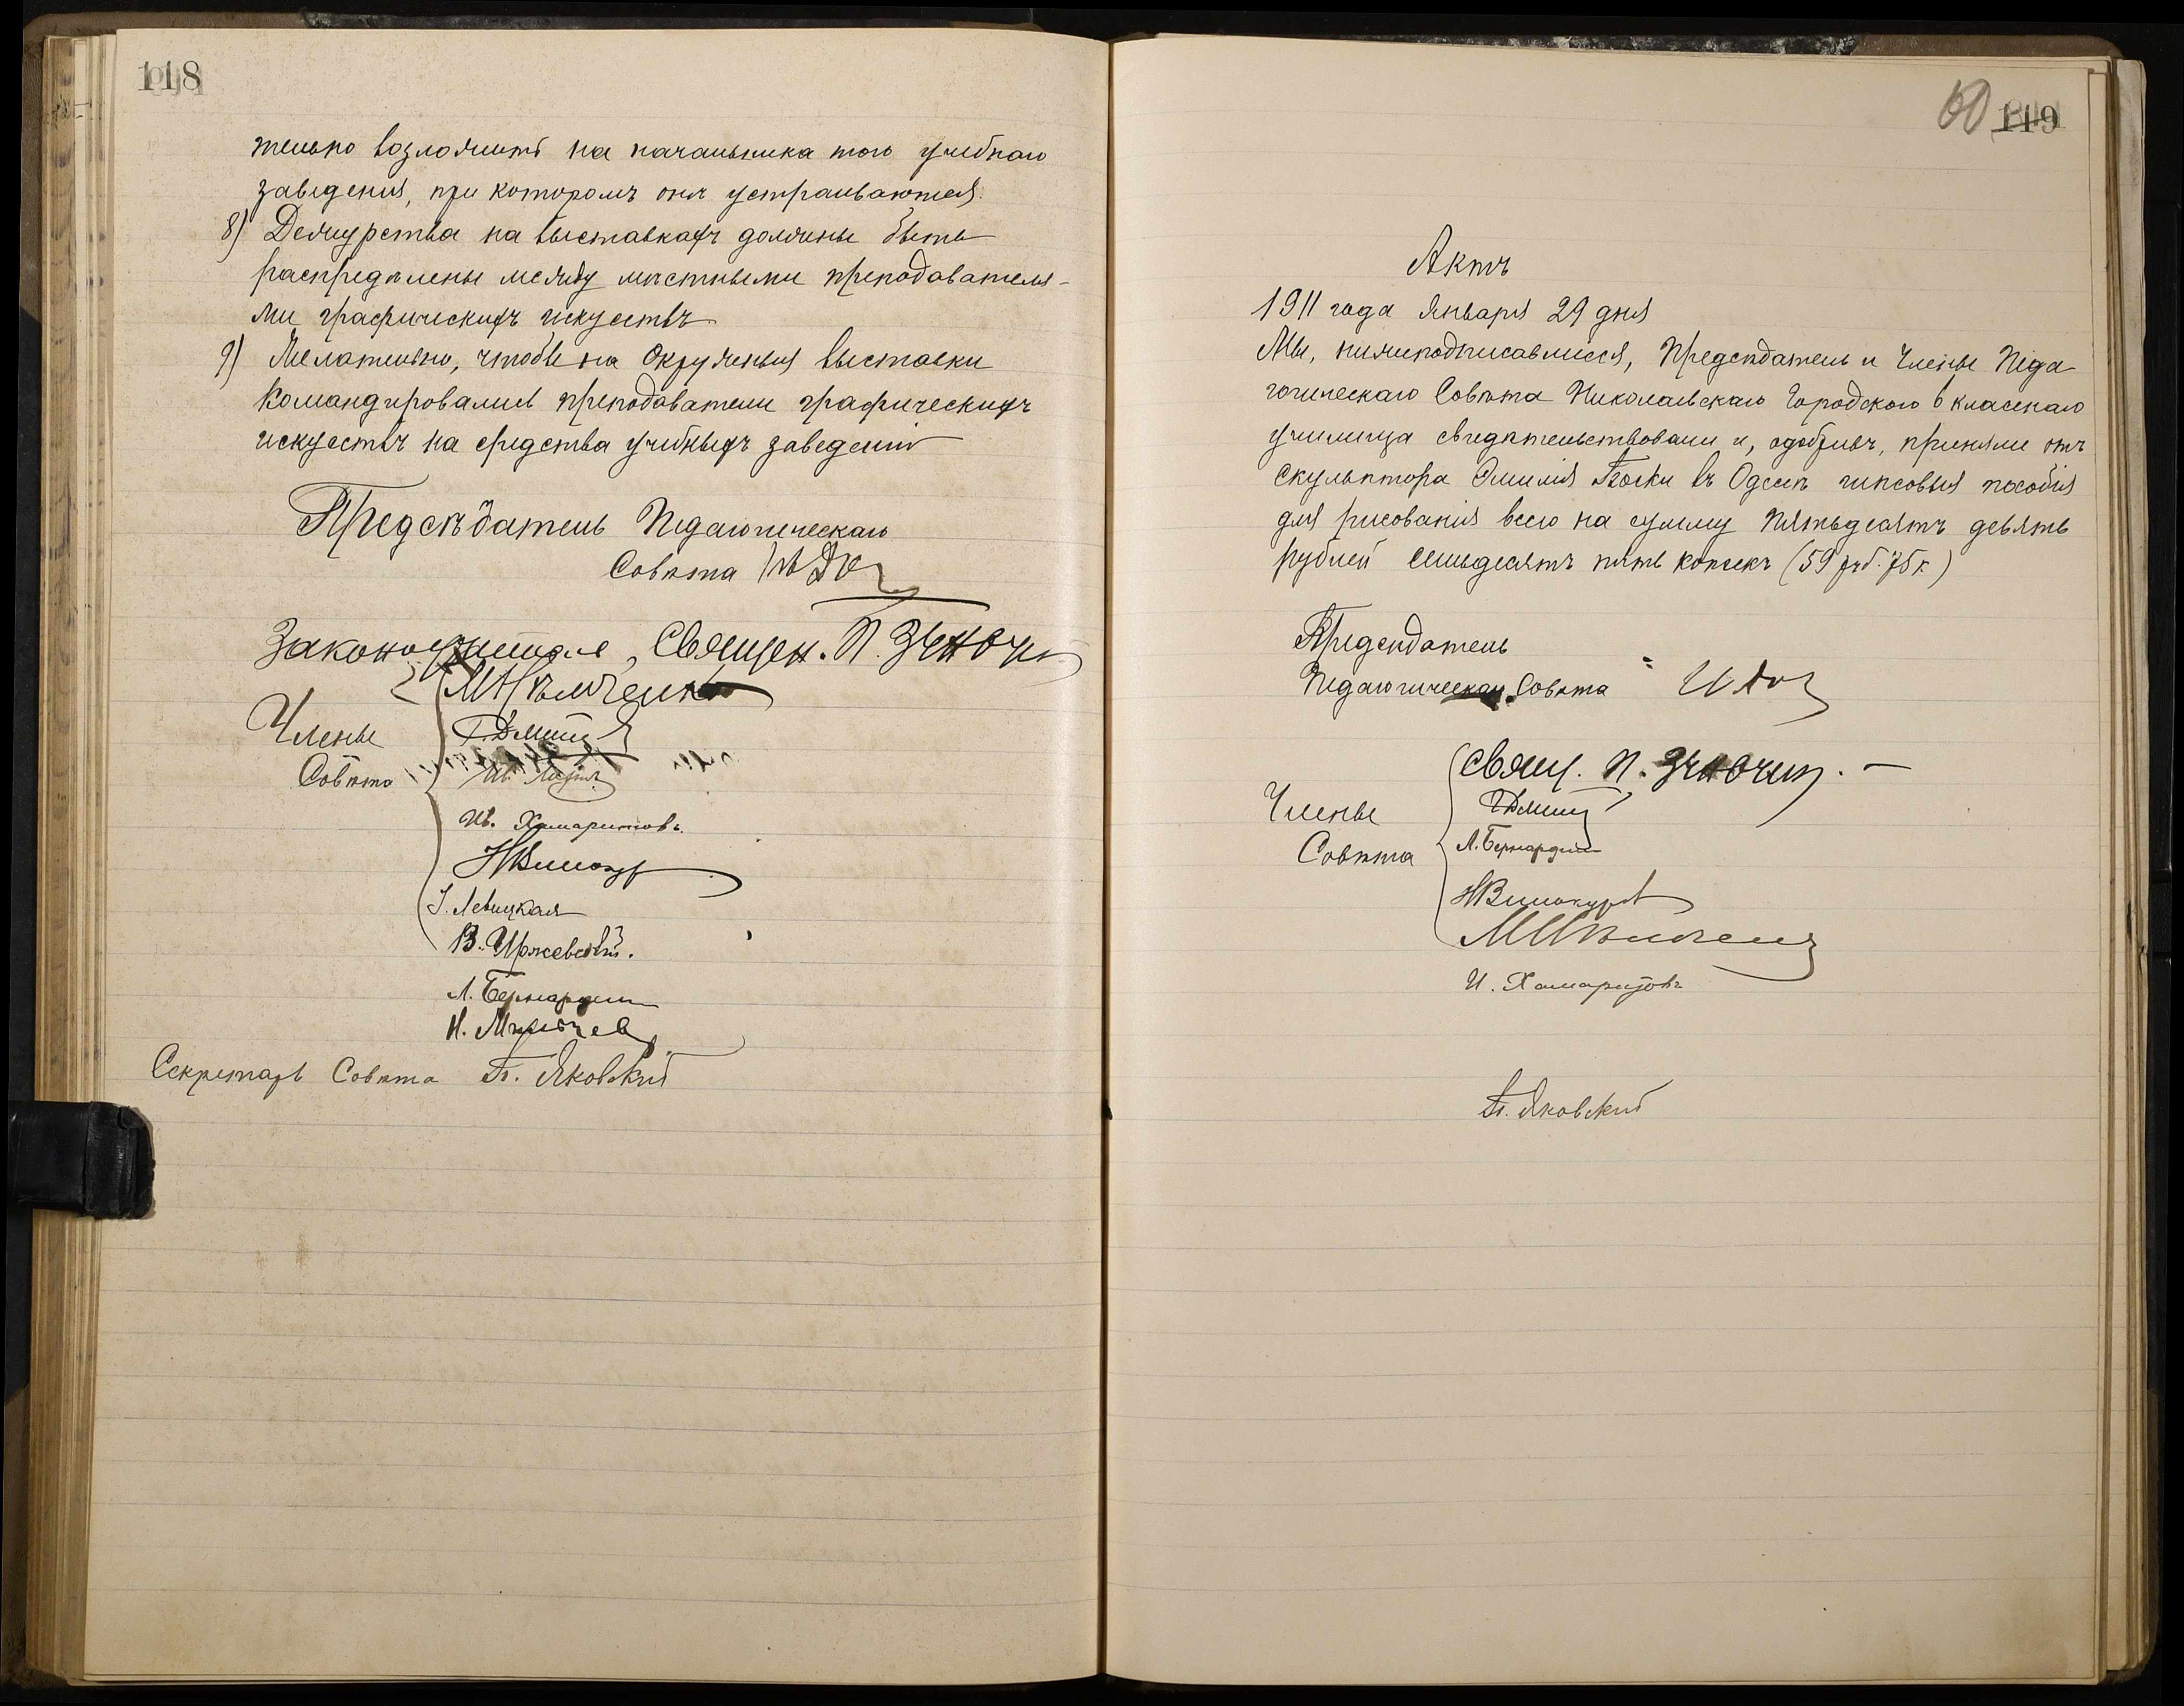 118
тельно возложить на начальника того учебнаго
заведенія, при которомъ онѣ устраиваются.
8) Дежурства на выставкахъ должны быть
распредѣлены между мѣстными преподавателя-
ми графическихъ искуствъ
9) Желательно, чтобы на Окружныя выставки
командировались преподаватели графическихъ
искуствъ на средства учебныхъ заведеній
Предсѣдатель Педагогическаго
Совѣта
Законоучитель, Священ. П.
Члены
Совѣта
Ив.
Ив. Хамаритовъ.
І. Левицкая
В. Иржевскій.
Л. Бернардин
Н.
Секретарь Совѣта П. Яковскій
60 119
Актъ
1911 года Января 29 дня
Мы, нижеподписавшіеся, Предсѣдатель и Члены Педа-
гогическаго Совѣта Николаевскаго Городского 6 класснаго
училища свидѣтельствовали и, одобривъ, приняли отъ
скульптора Эмилія Боски въ Одессѣ гипсовыя пособія
для рисованія всего на сумму пятьдесятъ девять
рублей семьдесятъ пять копѣекъ (59 руб. 75 к.)
Предсѣдатель
Педагогическаго Совѣта
Члены
Совѣта
Свящ. П.
Л. Бернардин
Н Винокуров
И. Хамаритовъ
П. Яковскій